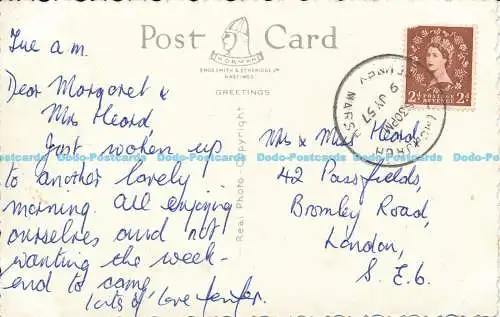 Tue a.m.
Dear Margaret &
Mrs Heard
Just woken up
to another lovely
morning. All enjoying
ourselves and not
wanting the week-
end to come,
lots of love
Post Card
NORMAN
SHOESMITH & ETHERIDGE LTD
HASTINGS
GREETINGS
Real Photo Copyright
Mrs & Miss Heard,
42 Passfields,
Bromley Road,
London,
S.E.6.
ROMNEY MARSH
30PM
9 JY 57
2D POSTAGE REVENUE 2D
Dodo-Postcards Dodo-Postcards Dodo-Postcards Dodo-Postcards Dodo-Postcards